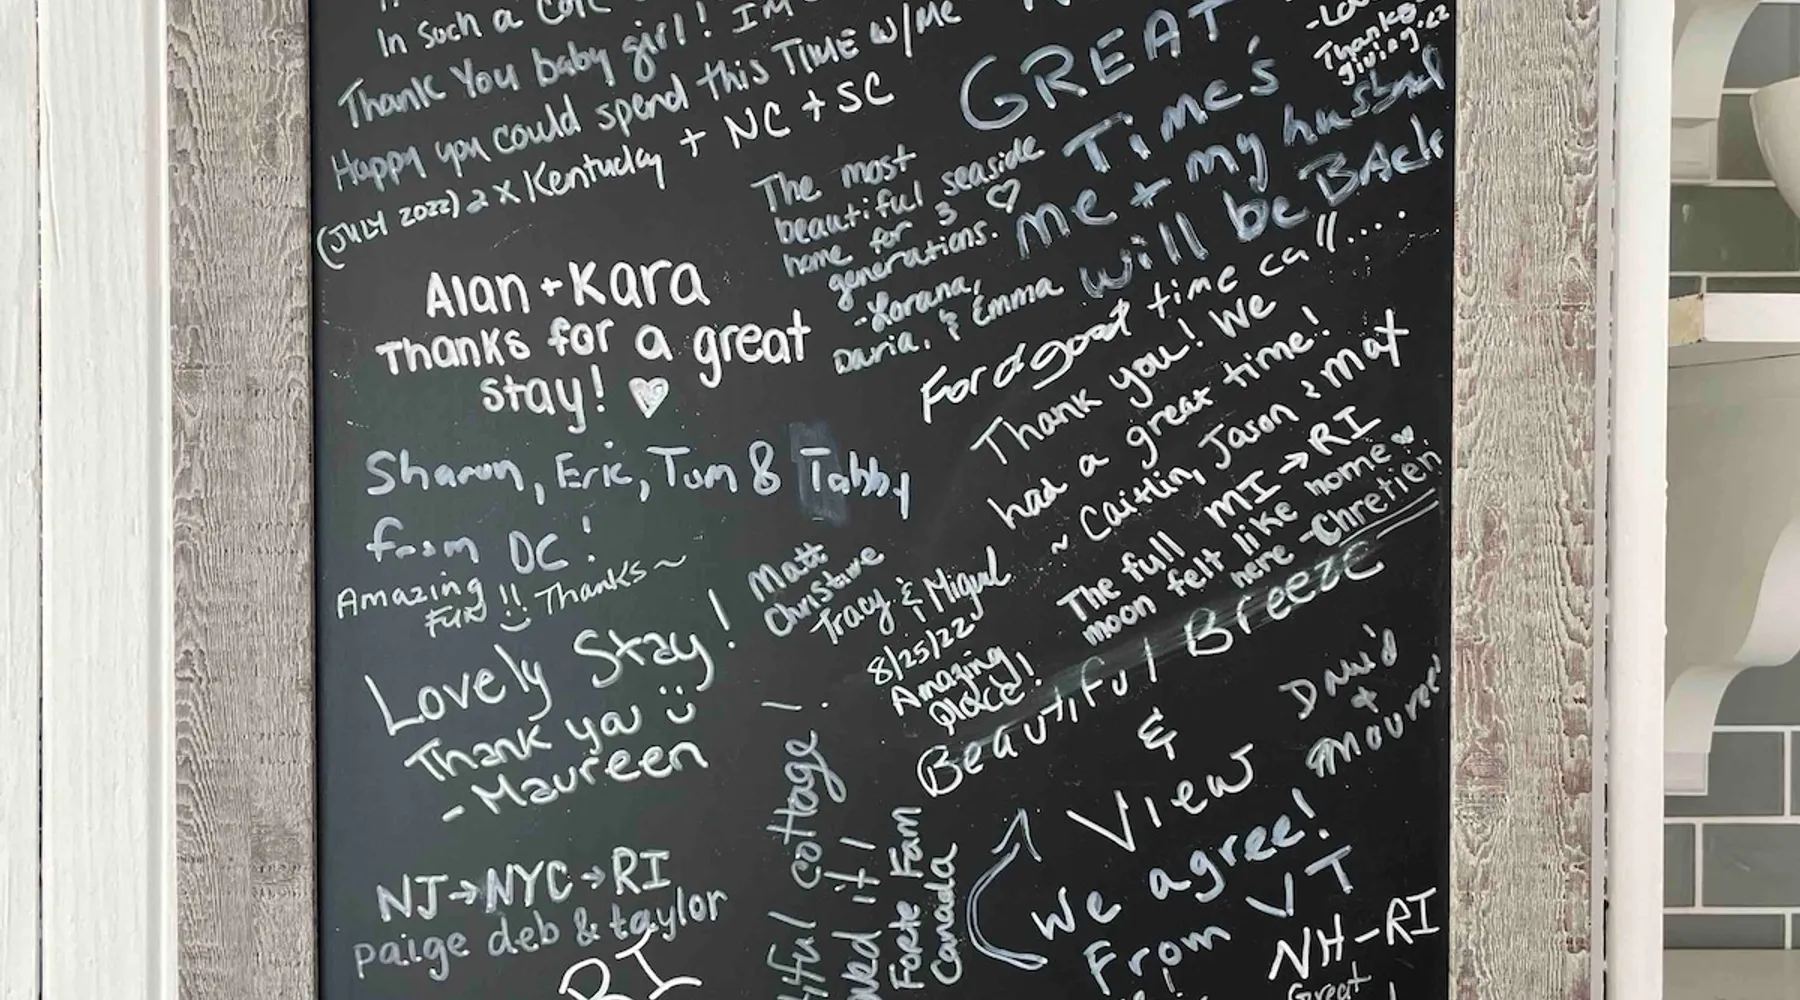 In such a
Thank You baby girl!
Happy you could spend this TIME w/Me
(JULY 2022) 2 X Kentucky + NC + SC
Alan + Kara
Thanks for a great
stay! ♡
Sharon, Eric, Tom & Tabby
from DC!
Amazing
FUN!! Thanks~
Lovely Stay!
Thank you
- Maureen
NJ→NYC→RI
paige deb & taylor
RI
GREAT
Times
me + my husband
will be BACK
Thanks
giving.22
The most
beautiful seaside
home for 3 ♡
generations.
-Lorana,
Daria, & Emma
For a good time call....
Thank you! We
had a great time!
~ Caitlin, Jason & Max
MI→RI
The full
moon felt like home
here -Chretien
Matt
Christine
Tracy & Miguel
8/25/22
Amazing
place!
Beautiful Breeze
&
View
David
+
We agree!
From VT
cottage!
it!
Forte Fam
Canada
NH-RI
Great